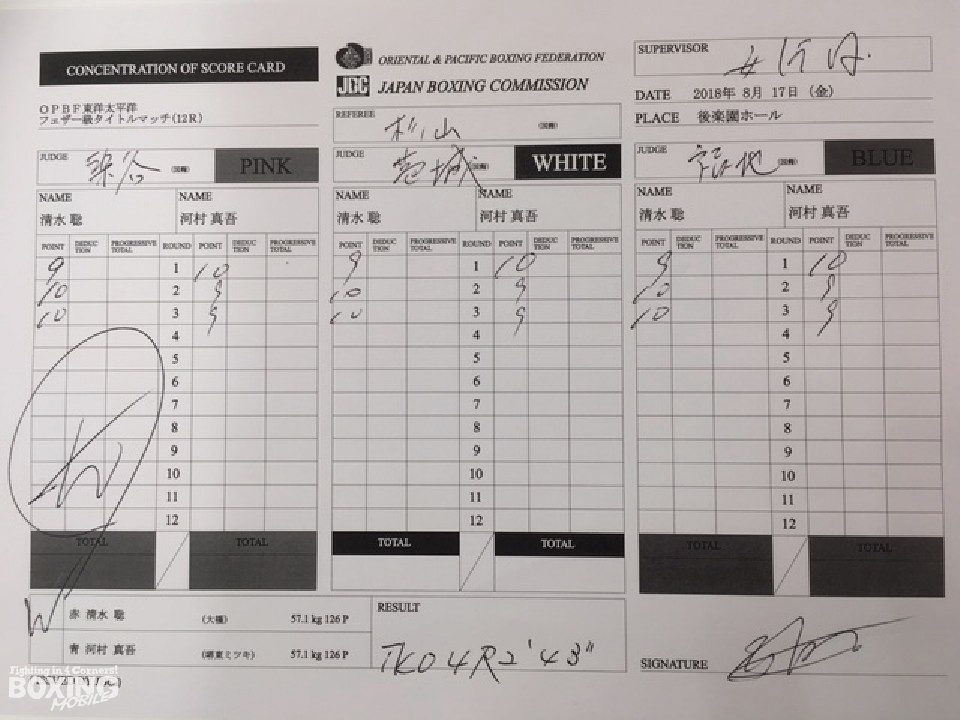 CONCENTRATION OF SCORE CARD
ORIENTAL & PACIFIC BOXING FEDERATION
JBC JAPAN BOXING COMMISSION
SUPERVISOR
OPBF東洋太平洋
フェザー級タイトルマッチ(12R)
REFEREE 杉山
DATE 2018年 8月 17日 (金)
PLACE 後楽園ホール
JUDGE 染谷 PINK
JUDGE WHITE
JUDGE 福地 BLUE
NAME NAME
清水 聡 河村 真吾
NAME NAME
清水 聡 河村 真吾
NAME NAME
清水 聡 河村 真吾
POINT DEDUCTION PROGRESSIVE TOTAL ROUND POINT DEDUCTION PROGRESSIVE TOTAL
9 1 10
10 2 9
10 3 9
4
5
6
7
8
9
10
11
12
TOTAL TOTAL
POINT DEDUCTION PROGRESSIVE TOTAL ROUND POINT DEDUCTION PROGRESSIVE TOTAL
9 1 10
10 2 9
10 3 9
4
5
6
7
8
9
10
11
12
TOTAL TOTAL
POINT DEDUCTION PROGRESSIVE TOTAL ROUND POINT DEDUCTION PROGRESSIVE TOTAL
9 1 10
10 2 9
10 3 9
4
5
6
7
8
9
10
11
12
TOTAL TOTAL
W 赤 清水 聡 (大橋) 57.1 kg 126 P
青 河村 真吾 (堺東ミツキ) 57.1 kg 126 P
RESULT
TKO 4R 2'43"
SIGNATURE
Fighting in 4 Corners!
BOXING
MOBILE